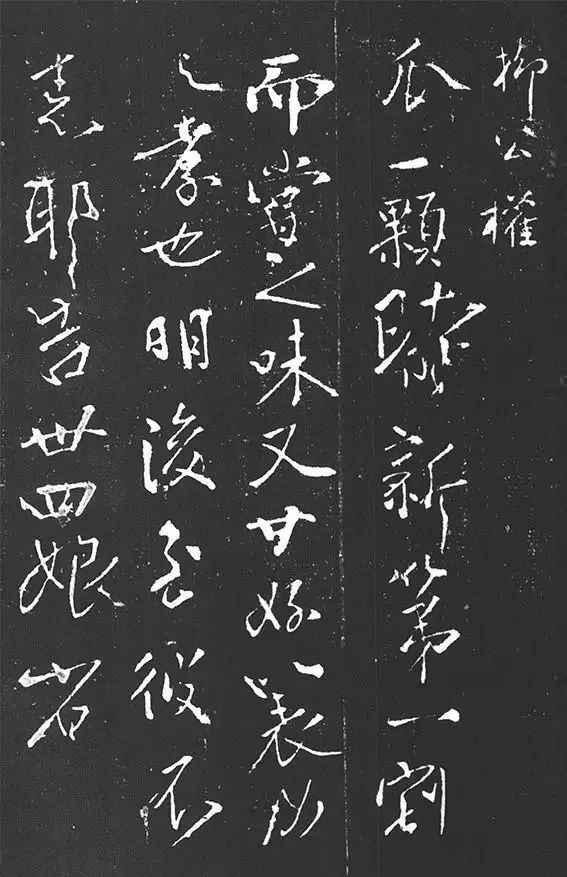 柳公權
瓜一顆新第一割
而嘗之味又甘好以表
之孝也明後至彼不
恚耶告卅四娘省